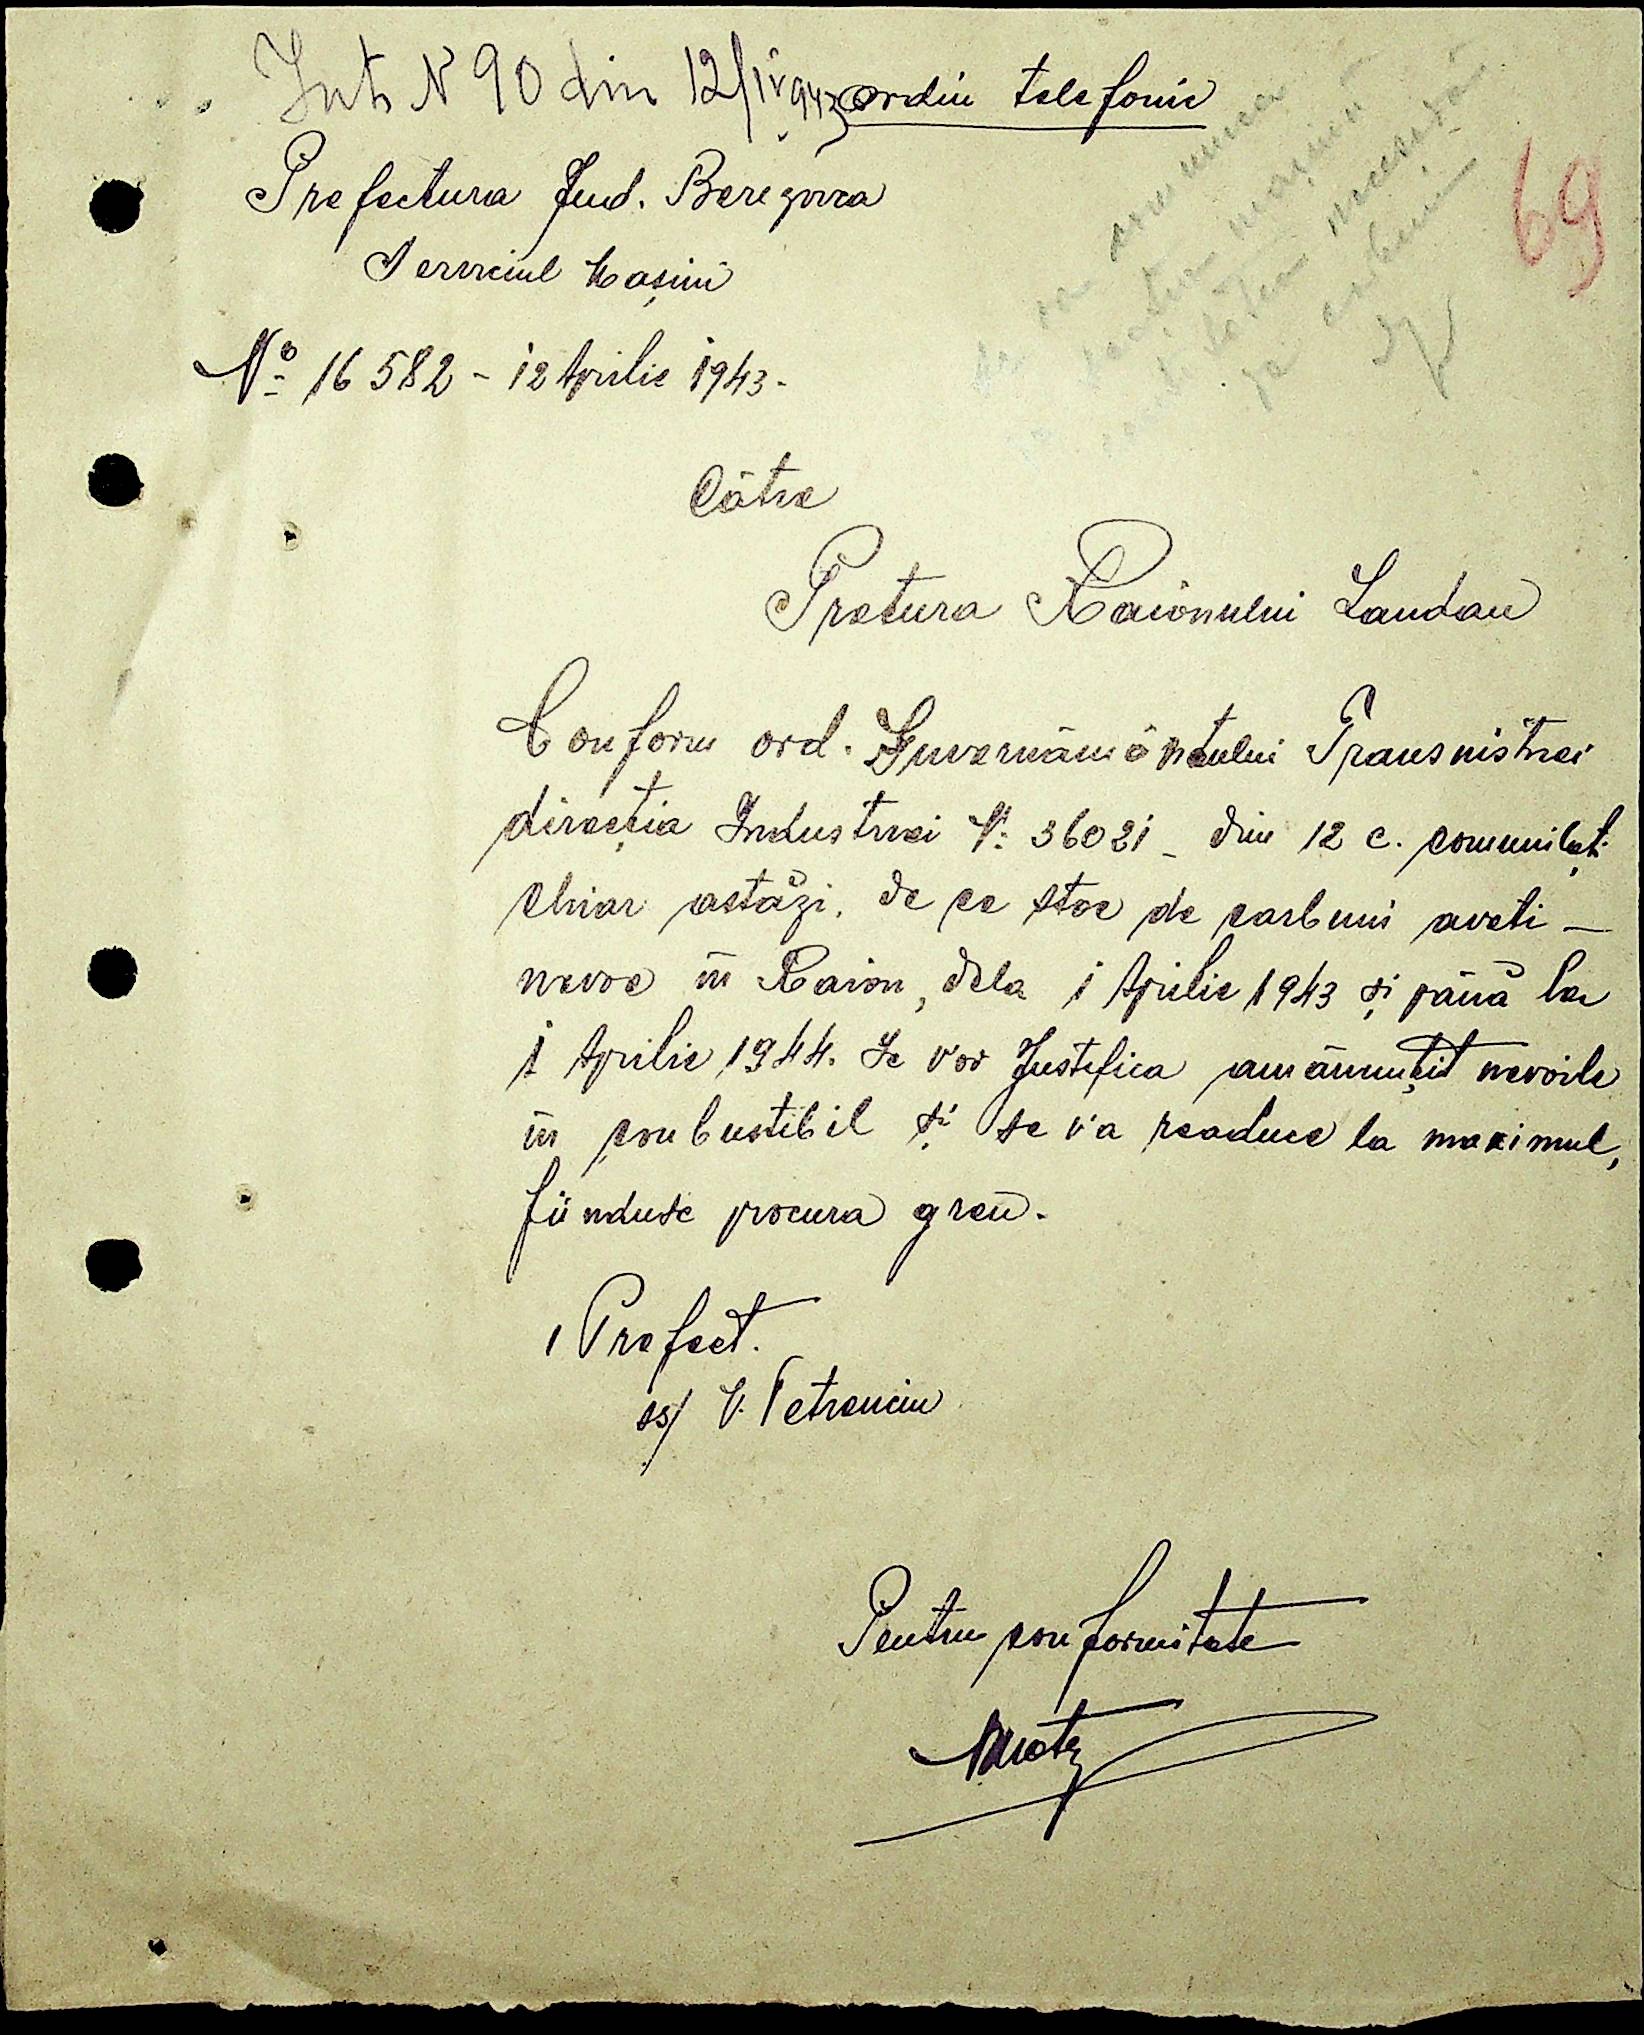 Int N 90 din 12/IV 943 ordin telefonic
69
Prefectura Jud. Berezovca
Serviciul Mașini
Nº 16582 - 12 Aprilie 1943.
Către
Pretura Raionului Landau
Conform ord. Guvernământului Transnistriei
direcția Industriei Nº 36021 - din 12 c. comunicați
chiar astăzi, de ce stoc de carbuni aveti -
nevoe în Raion, dela 1 Aprilie 1943 și până la
1 Aprilie 1944. Se vor Justifica amănunțit nevoile
în conbustibil și se va readuce la maximul,
fiinduse procura greu.
Prefect.
ss/ V. Petrenciu
Pentru conformitate